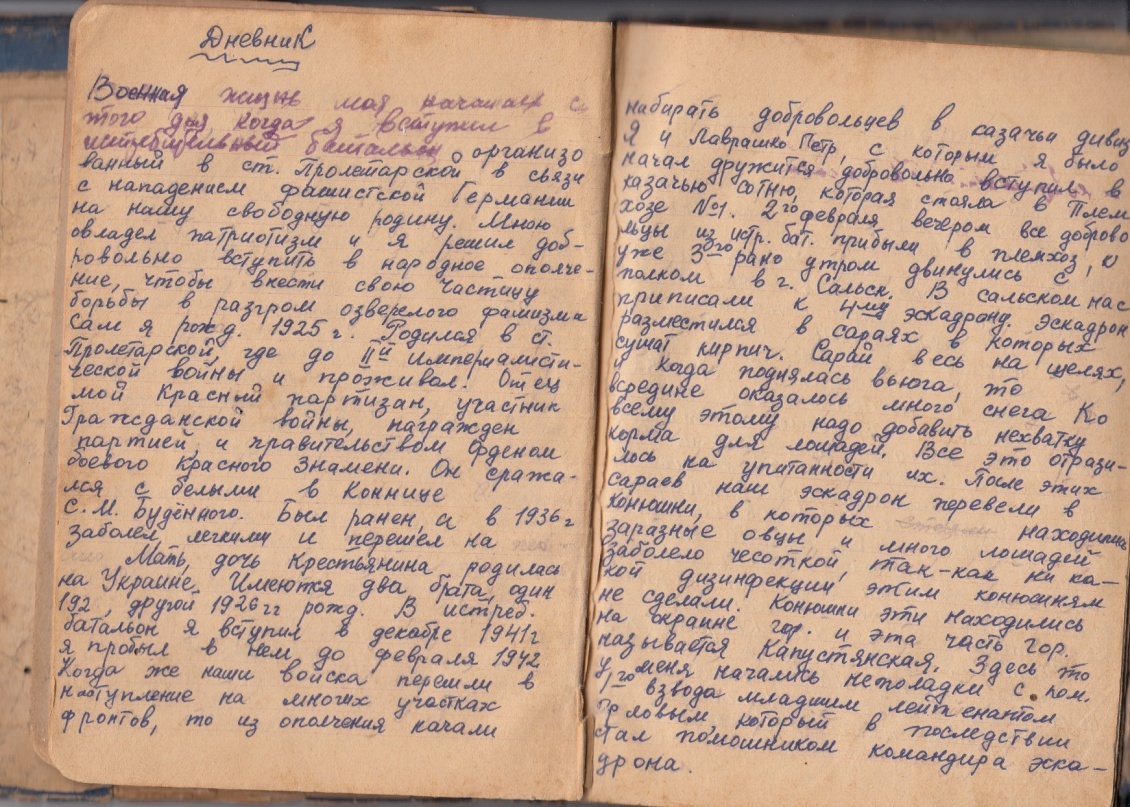 Дневник
Военная жизнь моя началась с
того дня, когда я вступил в
истребительный батальон, организо
ванный в ст. Пролетарской в связи
с нападением фашистской Германии
на нашу свободную родину. Мною
овладел патриотизм и я решил доб-
ровольно вступить в народное ополче-
ние, чтобы внести свою частицу
борьбы в разгром озверелого фашизма
Сам я рожд. 1925 г. Родился в ст.
Пролетарской, где до IIй империалисти-
ческой войны и проживал. Отец
мой Красный партизан, участник
Гражданской войны, награжден
партией и правительством Орденом
боевого Красного Знамени. Он сража-
лся с белыми в Коннице
С.М. Будённого. Был ранен, а в 1936 г
заболел легкими и перешел на
Мать, дочь Крестьянина родилась
на Украине. Имеются два брата, один
192 , другой 1926 гг рожд. В истреб.
батальон я вступил в декабре 1941 г
я пробыл в нем до февраля 1942
Когда же наши войска перешли в
наступление на многих участках
фронтов, то из ополчения начали
набирать добровольцев в казачьи дивиз
Я и Лаврашко Петр, с которым я было
начал дружится добровольно вступил в
казачью сотню, которая стояла в Плем
хозе №1. 2го февраля вечером все доброво
льцы из истр. бат. прибыли в племхоз, и
уже 3го рано утром двинулись с
полком в г. Сальск. В сальском нас
приписали к 4му эскадрону. Эскадрон
разместился в сараях в которых
сушат кирпич. Сараи весь на щелях,
и когда поднялась вьюга, то
всредине оказалось много снега Ко
всему этому надо добавить нехватку
корма для лошадей. Все это отрази-
лось на упитанности их. После этих
сараев наш эскадрон перевели в
конюшни, в которых находились
заразные овцы и много лошадей
заболело чесоткой, так-как ни ка-
кой дизинфекции этим конюшням
не сделали. Конюшни эти находились
на окраине гор. и эта часть гор.
называется Капустянская. Здесь то
у меня начались неполадки с пом.
1го взвода младшим лейтенантом
Орловым, который в последствии
стал помошником командира эска-
дрона.